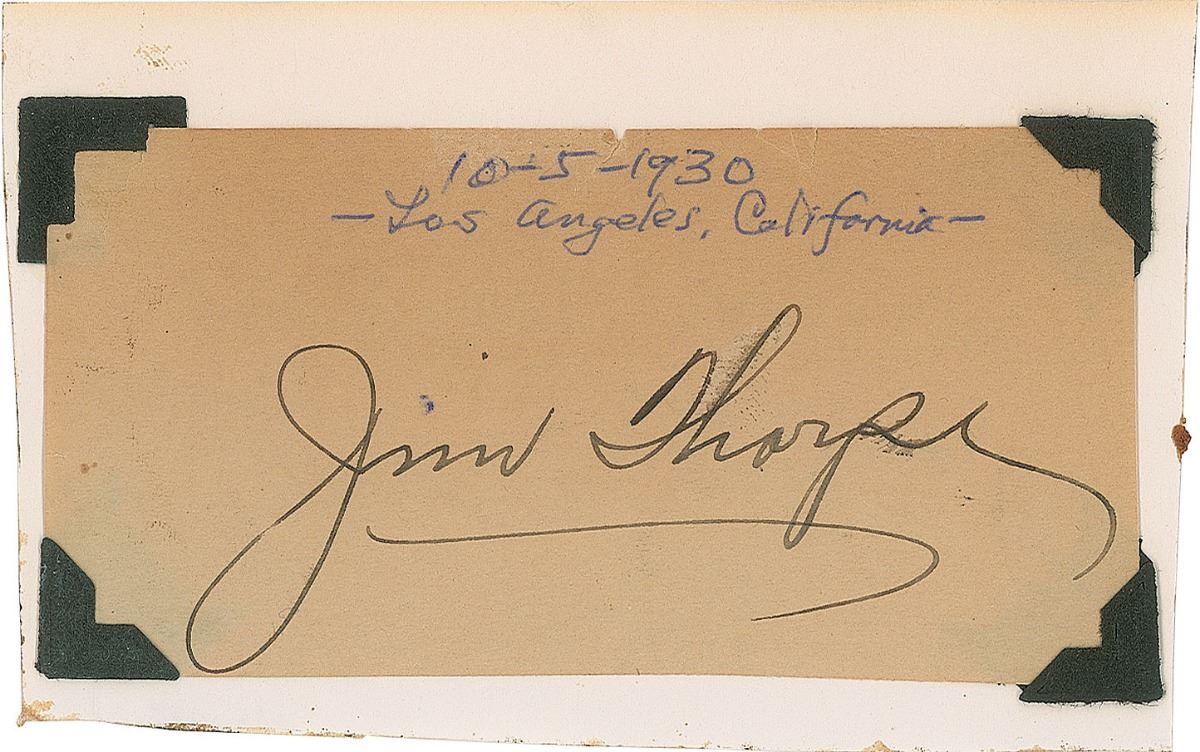 10-5-1930
-Los Angeles, California-
Jim Thorpe